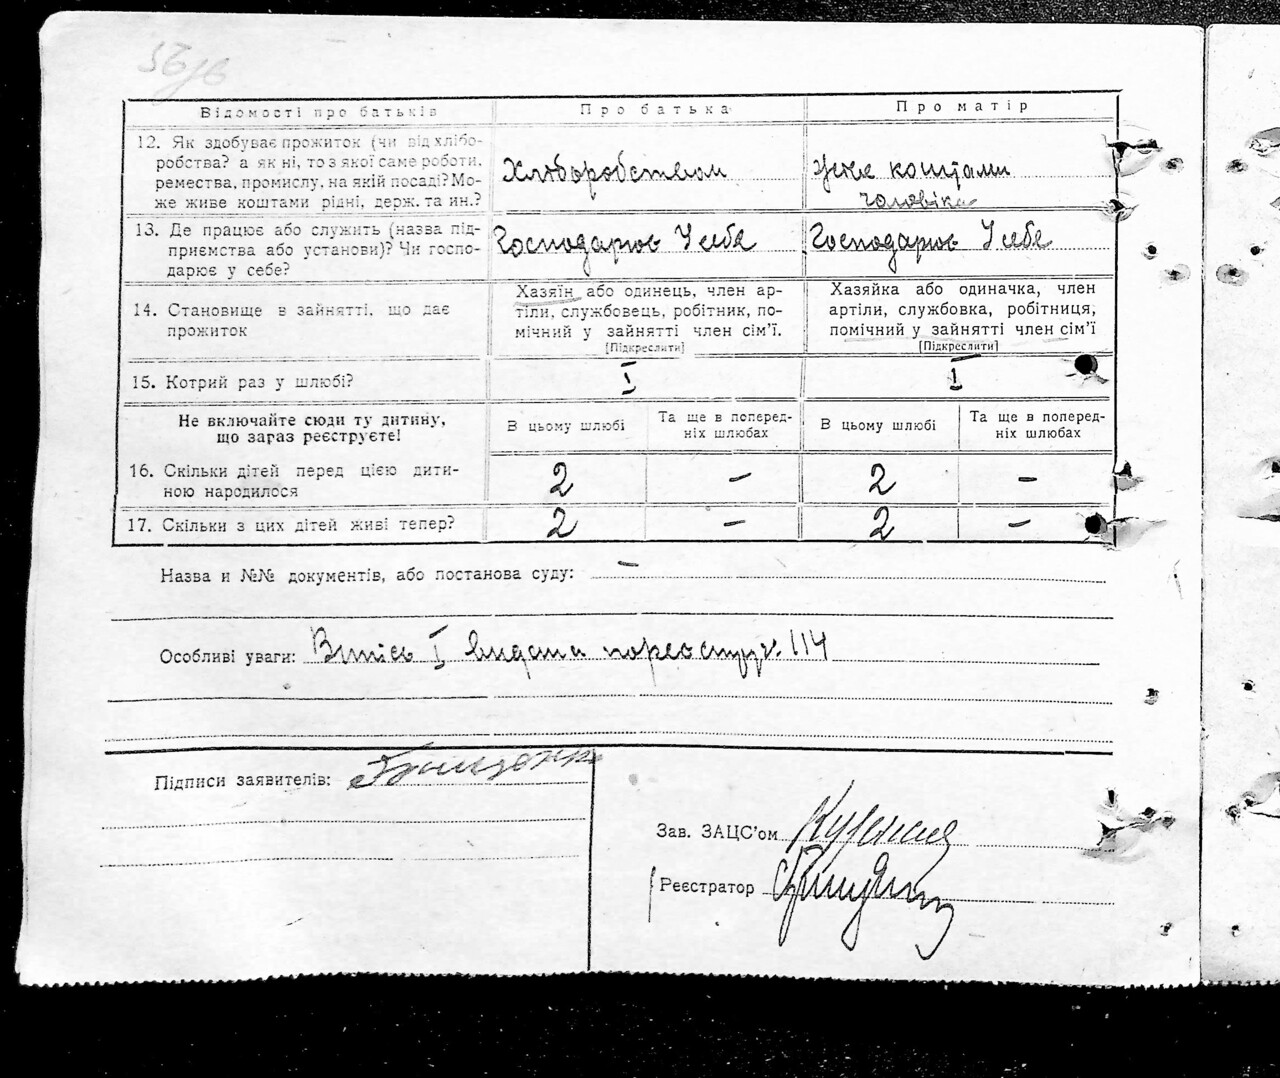 Відомості про батьків Про батька Про матір
12. Як здобуває прожиток (чи від хлібо-
робства? а як ні, то з якої саме роботи,
ремества, промислу, на якій посаді? Мо-
же живе коштами рідні, держ. та ин.?
Хліборобством
коштами
чоловіка
13. Де працює або служить (назва під-
приємства або установи)? Чи госпо-
дарює у себе?
Господарює У себе
Господарює У себе
14. Становище в зайнятті, що дає
прожиток
Хазяїн або одинець, член ар-
тіли, службовець, робітник, по-
мічний у зайнятті член сім'ї.
[Підкреслити]
Хазяйка або одиначка, член
артіли, службовка, робітниця,
помічний у зайнятті член сім'ї
[Підкреслити]
15. Котрий раз у шлюбі? I I
Не включайте сюди ту дитину,
що зараз реєструєте!
В цьому шлюбі
Та ще в поперед-
ніх шлюбах
В цьому шлюбі
Та ще в поперед-
ніх шлюбах
16. Скільки дітей перед цією дити-
ною народилося
2 – 2 –
17. Скільки з цих дітей живі тепер? 2 – 2 –
Назва и №№ документів, або постанова суду: –
Особливі уваги: I 114
Підписи заявителів:
Зав. ЗАЦС'ом
Реєстратор